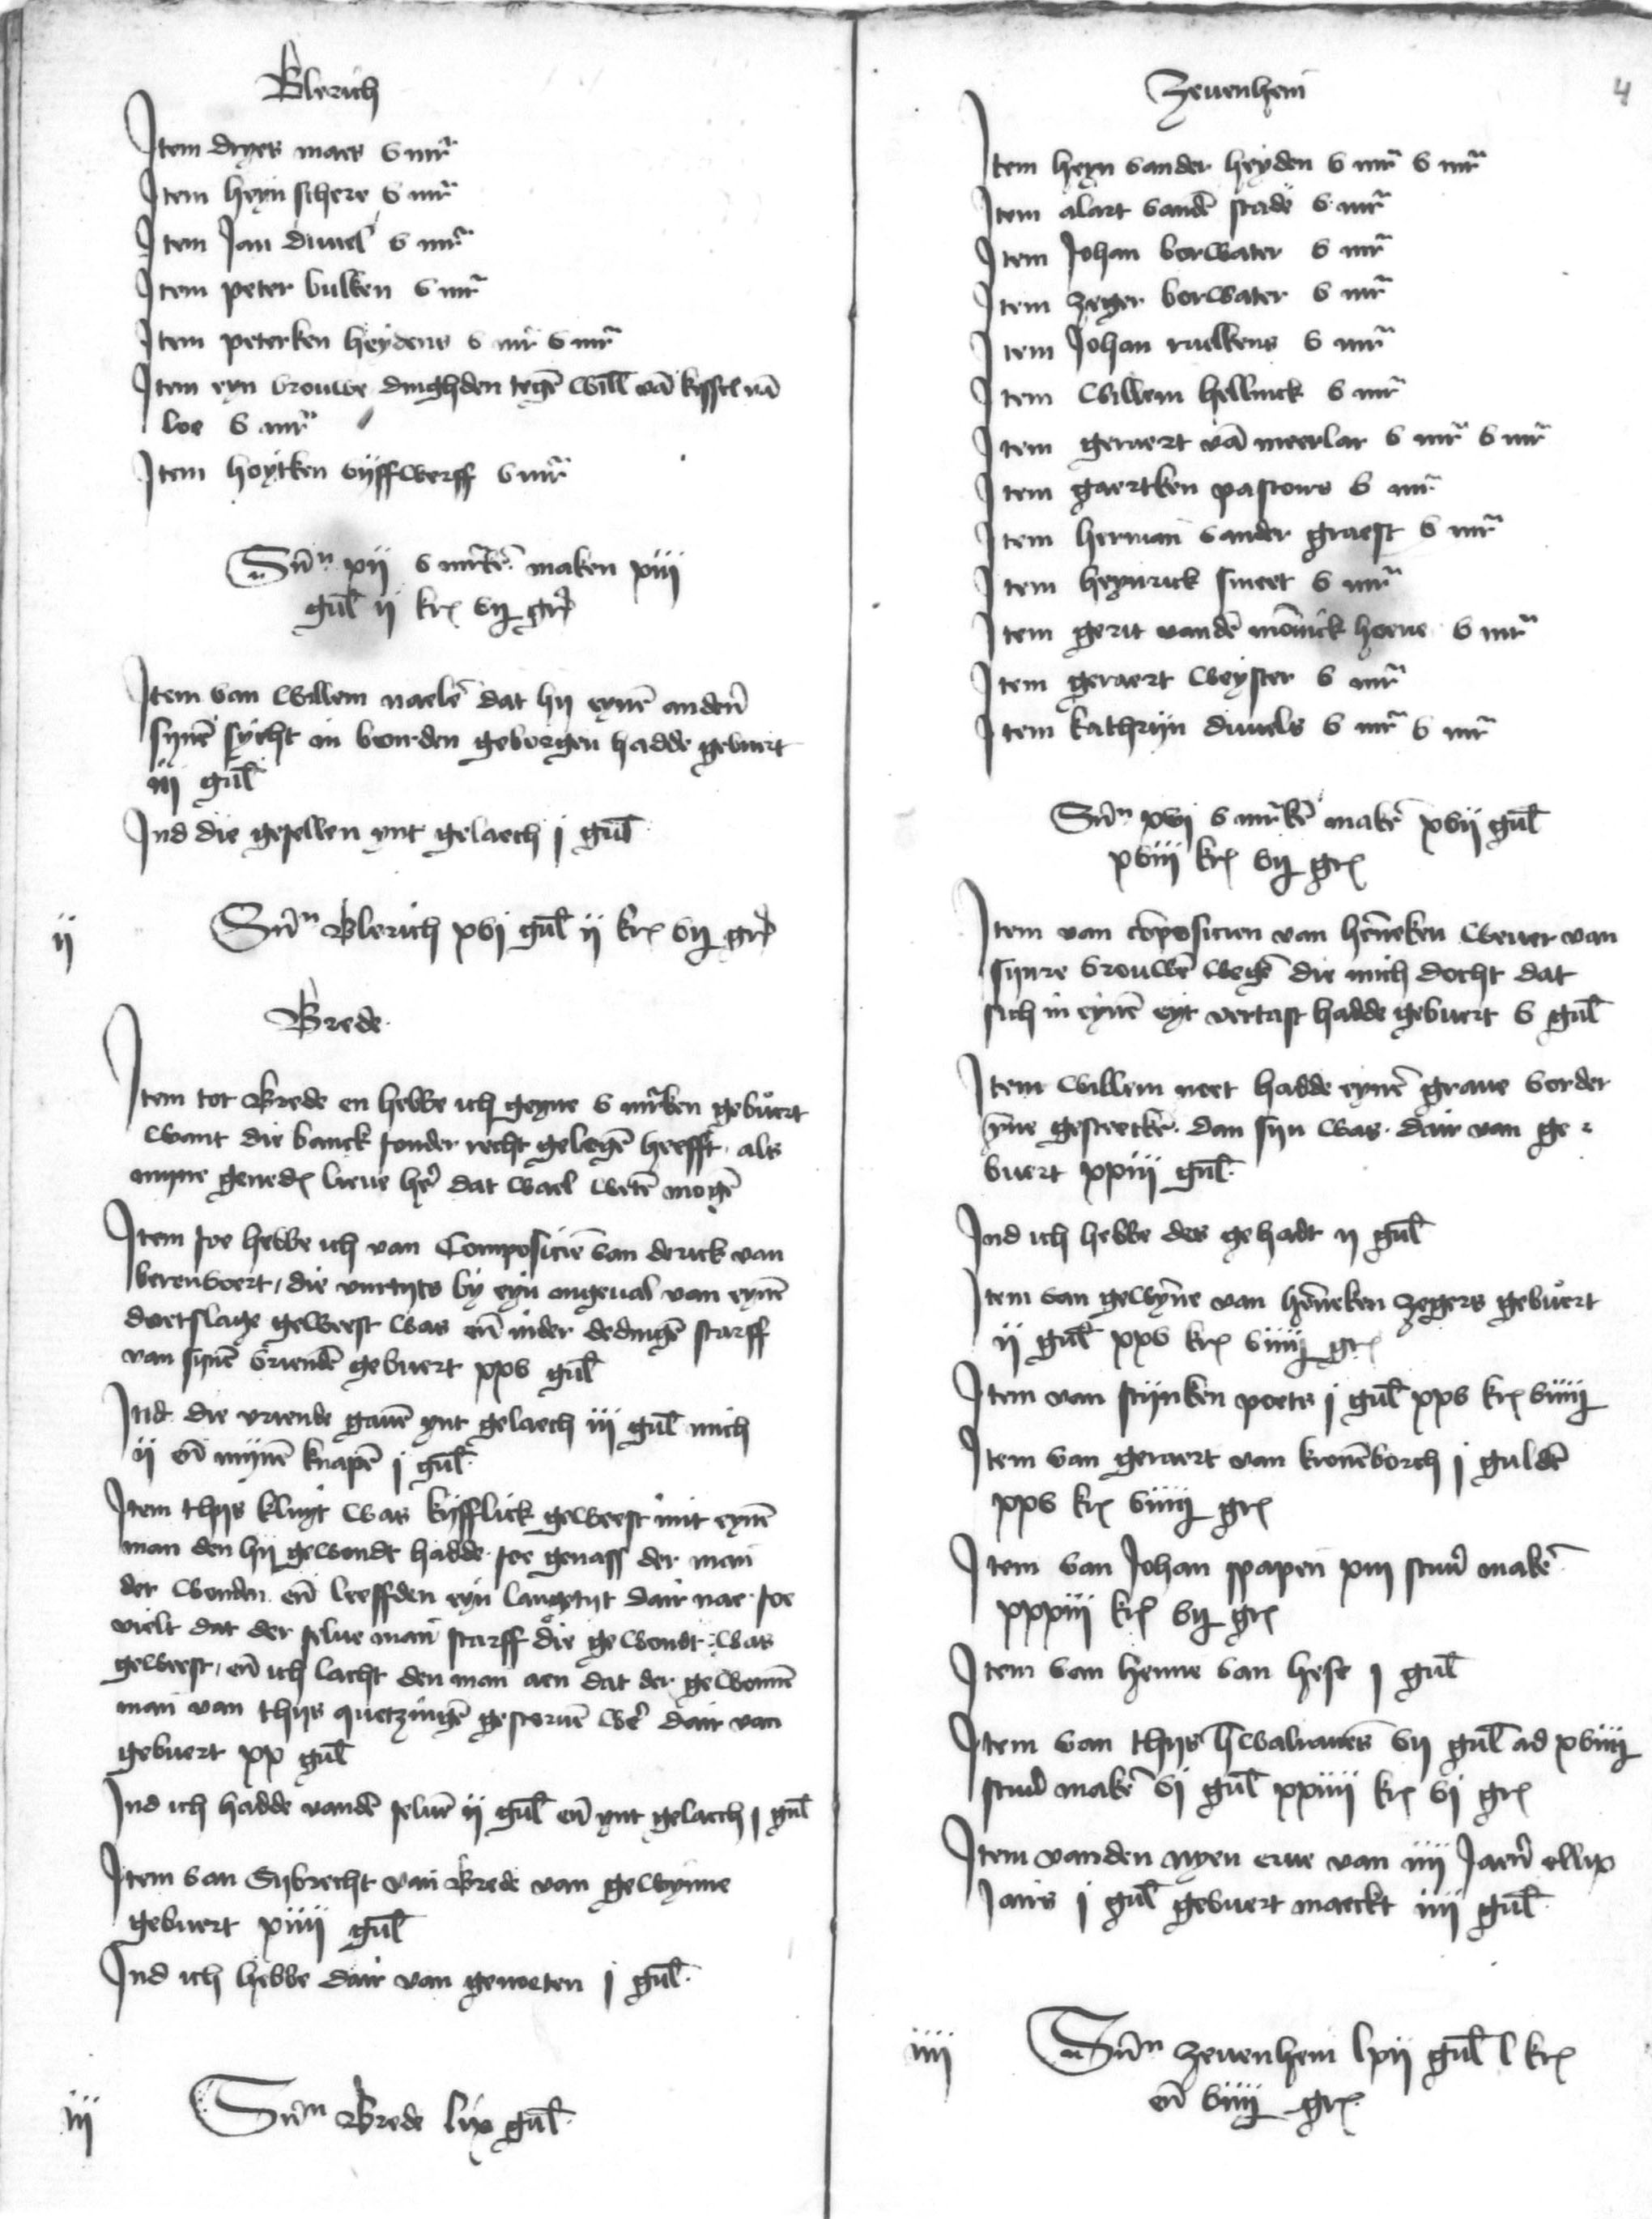 Blerich
Item dryes maes v mrͣ
Item heyn schere v mrͣ
Item Jan duuel v mrͣ
Item peter bulken v mrͣ
Item peterken heydens v mr v mrͣ
Item eyn vrouwe dinghden tegē Will vā kessel vā
loe v mrͣ
Item hoytken vijffwerff v mrͣ
Sūm xii v mrkē maken xiii
gul ii kr vij gr
Item van Willem naelē dat hij eynē anderē
synē sycht in boerden geborgen hadde gebuert
iii gul
Ind die gesellen ynt gelaech j gul
ii
Sūm Blerich xvi gul ii kr vij gr
Brede
Item tot Brede en hebbe ich geyne v mrken gebuert
want die banck sonder recht gelegē heefft als
myne gened lieue her dat wael wetē mogē
Item soe hebbe ich van Composicie van derick van
berenvoert, die vurtyts by eyn ongeual van eynē
doetslage geweest was eñ inder dedingē starff
van synē vrienden gebuert xxv gul
Ind die vriende gauē ynt gelaech iii gul mich
ii eñ mynē knapē j gul
Item thys kluyt was kyfflick geweest mit eynē
man den hij gewondt hadde soe genass der man
der wonden eñ leeffden eyn langtyt dair nae soe
vielt dat der selue man starff die gewondt was
geweest, eñ ich lacht den man aen dat der gewonnē
man van thys quetzingē gestoruē wer dair van
gebuert xx gul
Ind ich hadde vandē seluē ii gul eñ ynt gelaech j gul
Item van Sybrecht van Brede van gewynne
gebuert xiiii gul
Ind ich hebbe dair van genoeten j gul
iii
Sūm Brede lix gul
4
Zeuenhem
Item heyn vander heyden v mrͣ v mrͣ
Item alart vandē stade v mrͣ
Item Johan berwater v mrͣ
Item zeger berwater v mrͣ
Item Johan ruelkens v mrͣ
Item Willem hellinck v mrͣ
Item geraert vā meerlar v mrͣ v mrͣ
Item gaertken pastoirs v mrͣ
Item herman vander graest v mrͣ
Item heynrick smeet v mrͣ
Item gerit vandē mōnick hoeue v mrͣ
Item geraert weyster v mrͣ
Item kathryn duuels v mrͣ v mrͣ
Sūm xvi v mrkē makē xvii gul
xviii kr vij gr
Item van cōposicien van hēneken weuer van
synre vrouwē wegē die mich docht dat
sich in eynē eyt vertast hadde gebuert v gul
Item Willem neet hadde eynē graue vorder
yñe gesteeckē dan syn was dair van ge
buert xxiii gul
Ind ich hebbe des gehadt ii gul
Item van gewyñe van hēneken zegers gebuert
ii gul xxv kr viiij gr
Item van stynken poets j gul xxv kr viiij
Item van geraert van kronēborch j guldē
xxv kr viiij gr
Item van Johan spapen xiii stuu makē
xxxiii kr vij gr
Item van henne van hese j gul
Item van thys walrauēs vij gul ad xviiij
stuu makē vj gul xxiiii kr vj gr
Item vanden nyen erue van iiii Jaer ellix
Jairs j gul gebuert maeckt iiii gul
iiii
Sūm zeuenhem lxii gul l kr
eñ viiij gr